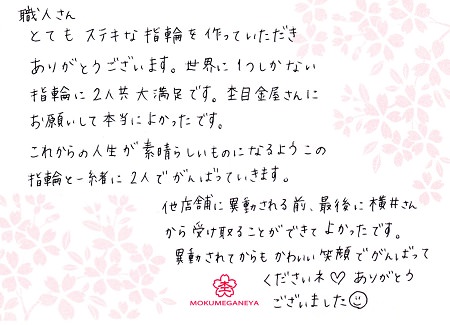 職人さん
とても ステキな 指輪を作っていただき
ありがとうございます。世界に1つしかない
指輪に2人共大満足です。杢目金屋さんに
お願いして本当によかったです。
これからの人生が素晴らしいものになるようこの
指輪と一緒に2人でがんばっていきます。
他店舗に異動される前、最後に横井さん
から受け取ることができてよかったです。
異動されてからもかわいい笑顔でがんばって
くださいネ♡ ありがとう
ございました☺
杢
MOKUMEGANEYA